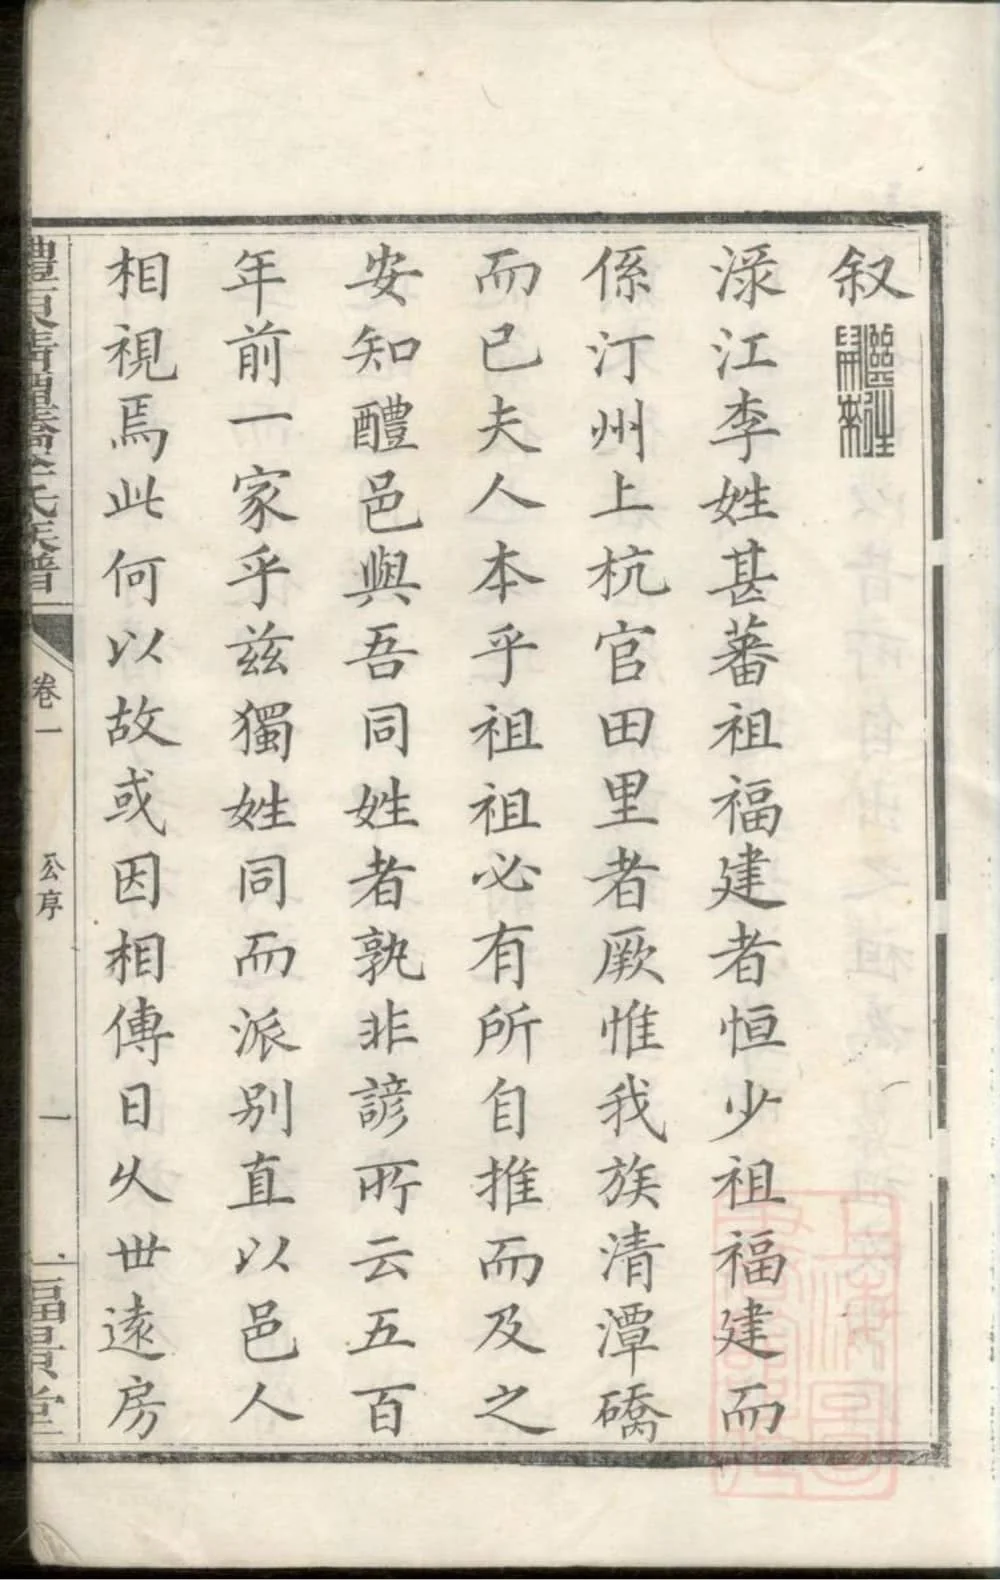 叙
渌江李姓甚蕃祖福建者恒少祖福建而
係汀州上杭官田里者厥惟我族清潭礄
而已夫人本乎祖祖必有所自推而及之
安知醴邑與吾同姓者孰非諺所云五百
年前一家乎兹獨姓同而派别直以邑人
相視焉此何以故或因相傳日久世遠房
醴東清潭礄李氏族譜
卷一
公序
一